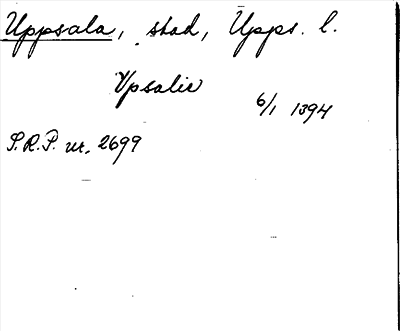 Uppsala, stad, Upps. l.
Vpsalie
6/1 1394
S.R.P. nr. 2699